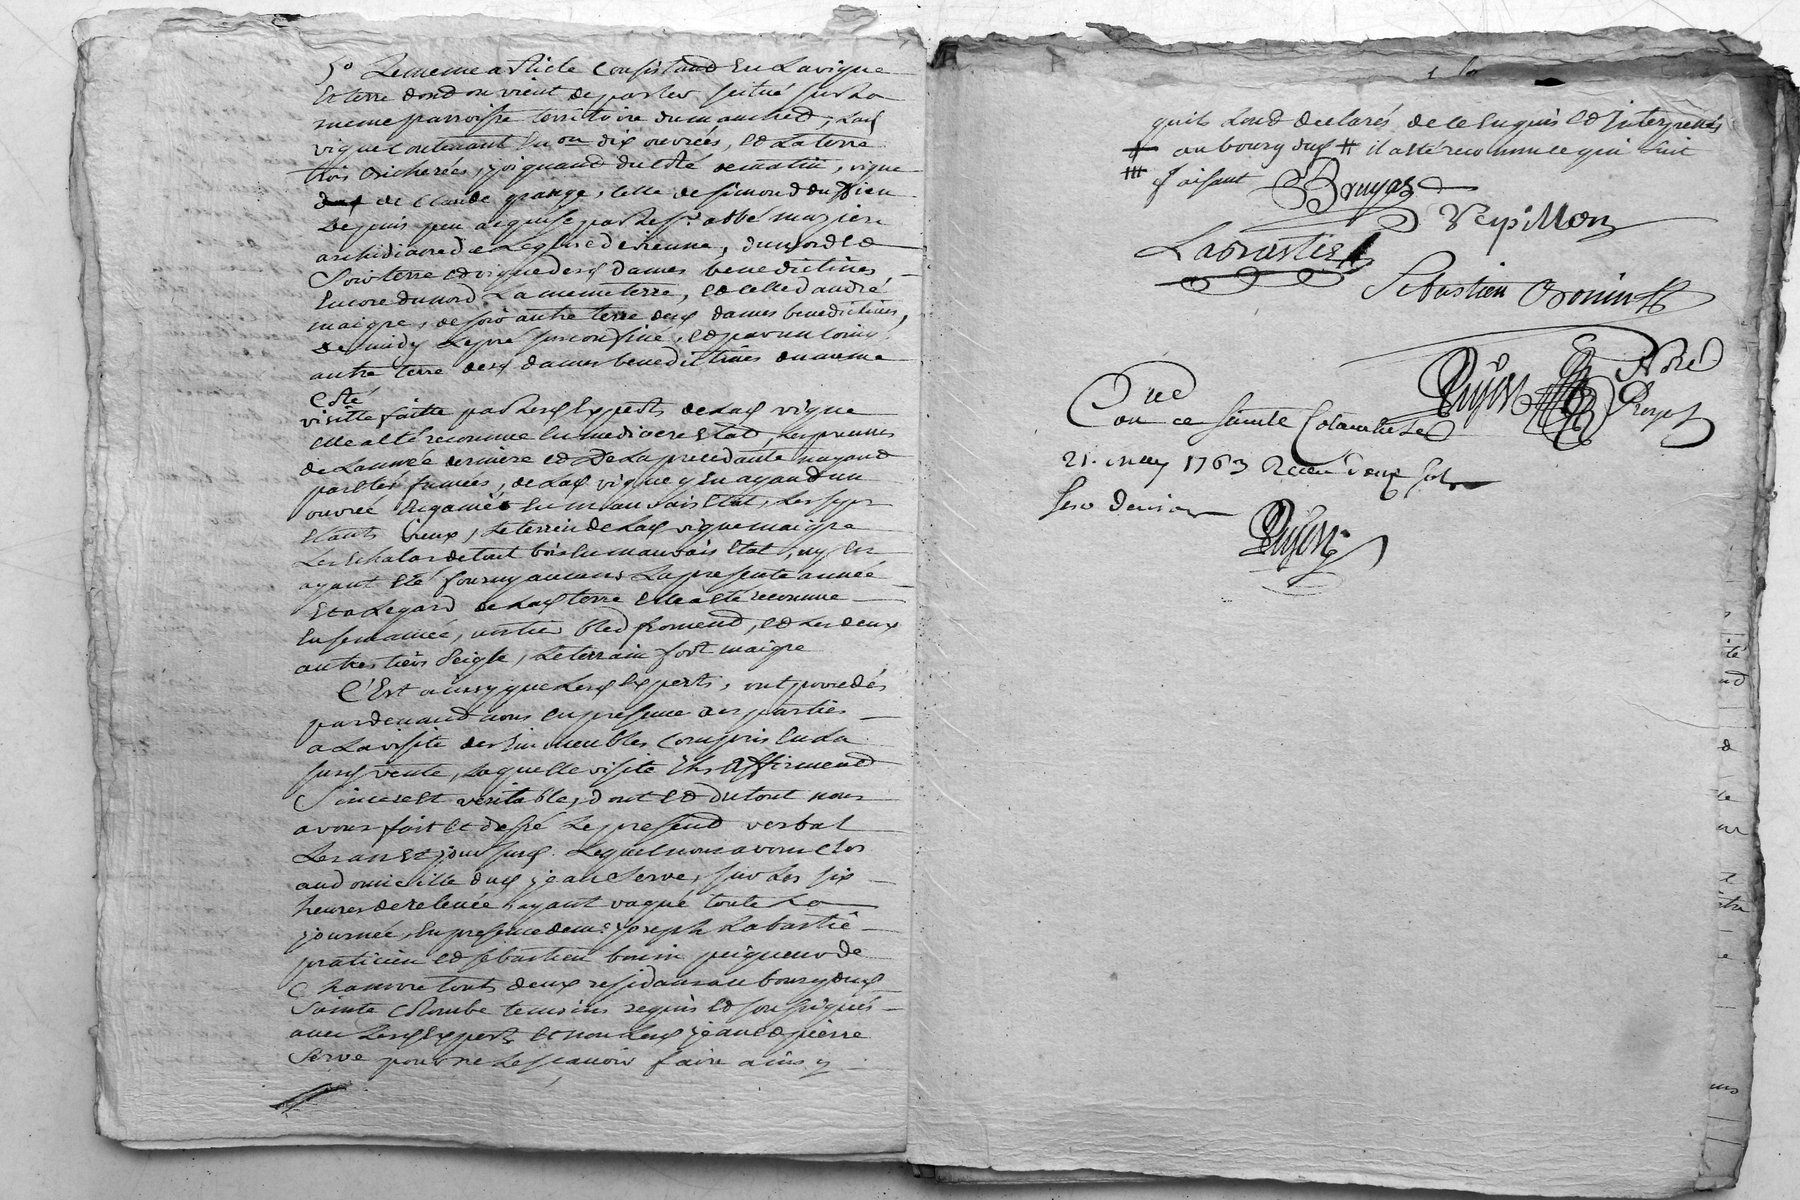 5° Le meme article consistand en la vigne
et terre dond on vient de parler scitué sur la
meme parroisse territoire du manched, lad
vigne contenant en on dix ouvrées, ed la terre
trois bicherées, joignand du coté de matin, vigne
de claude grange, celle de simond duffieu
depuis peu acquise par le sr abbé mazier
archidiacre de l'eglise de vienne, du nord ed
soir terre ed vigne desd dames benedictines,
encore du nord la meme terre, ed celle d'andré
maigre, de soir autre terre desd dames benedictines,
de midy le pré sus confiné, ed par un coing
autre terre desd dames benedictines du meme
coté
visitte faitte par lesd experts de lad vigne
elle a été reconnue en mediocre etad, les preuves
de l'année derniere ed de la precedante n'ayand
pas eté fumées, de lad vigne y en ayand un
ouvrée en mauvais etat, les seps
etants vieux, le terrein de lad vigne maigre
les echalas de tout bois en mauvais etat, n'y en
ayant eté fourny aucuns la presente année
et a l'egard de lad terre elle a eté reconnue
ensemancée, un tier bled fromend, ed les deux
autres tiers seigle, le terrain fort maigre
C'est ainsy que lesd experts, ont procedés
pardevand nous en presence des parties
a la visite des immeubles compris en la
susd vente, laquelle visite ils affirmend
sincere et veritable, dont ed du tout nous
avons fait et dressé le presend verbal
les an et jour susd. lequel nous avons clos
au domicille dud jean serve, sur les six
heures de relevée, ayant vaqué toute la
journée, en presence de me joseph labastie
praticien ed sébastien bonin peigneur de
chanvre touts deux residans au bourg dud
sainte colombe temoins requis ed soussignés
avec lesd experts et non lesd jean ed pierre
serve pour ne le scavoir faire ainsy
qu'ils l'ond declarés de ce enquis ed interpellés
‡ au bourg dud # il a eté reconnu ce qui suit
faisant Bruyas
Verpillion
Labrastie
Sebastien Bonin
André
Dujon Royet
Cone
a Ste Sainte Colombe le
21 may 1763 Recu deux sols
six deniers
Dujon